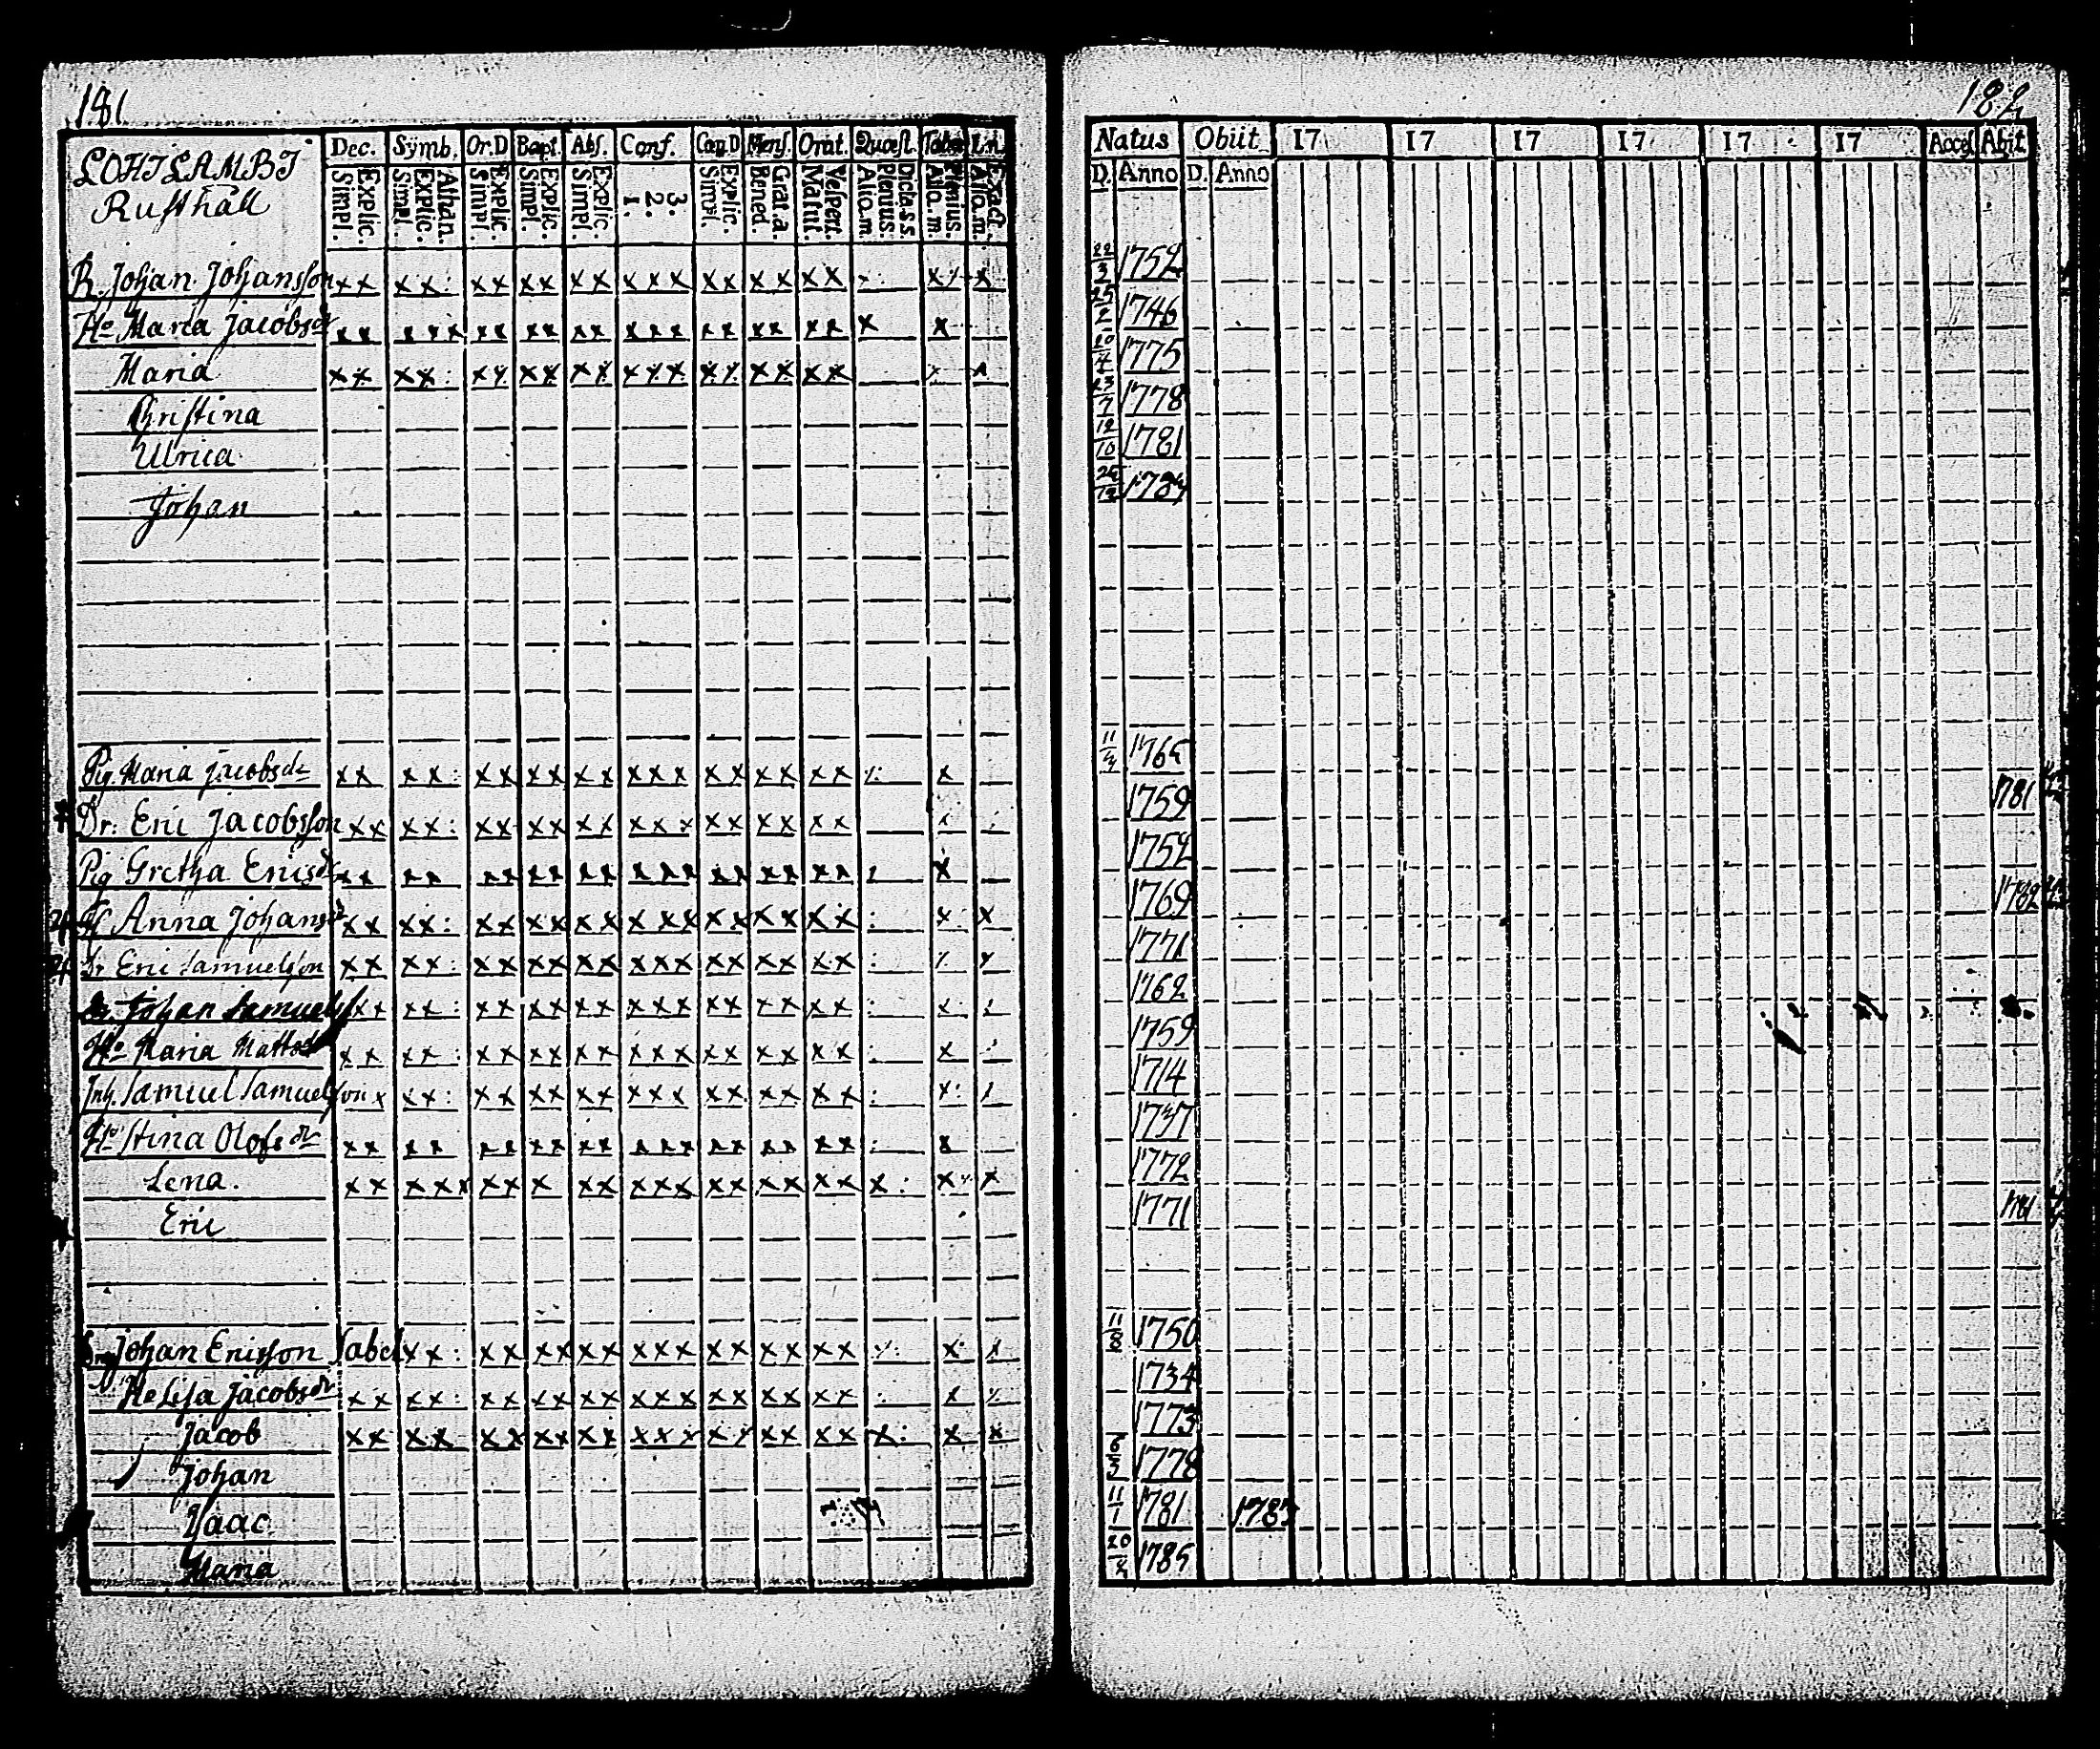 181
LOHJLAMBJ
Rusthåll
Dec. Symb. Or.D Bapt. Abs. Conf. Cœn.D Mens. Orat. Quæst. Tabæ L.n.
Simpl. Explic. Simpl. Explic. Athan. Simpl. Explic. Simpl. Explic. Simpl. Explic. 1. 2. 3. Simpl. Explic. Bened. Grat. a. Matut. Vespert. Alio.m. Plenius. Dicta s.s. Alio.m. Plenius. Alio.m. Exact.
R. Johan Johansson xx xx: xx xx xx xxx xx xx xx
Ho Maria Jacobsdr xx xxx xx xx xx xxx xx xx xx x x
Maria xx xx: xx xx xx xxx xx xx xx
Christina
Ulrica
Johan
Pig. Maria Jacobsdr xx xx: xx xx xx xxx xx xx xx x
Dr: Eric Jacobsson xx xx: xx xx xx xxx xx xx xx
Pig Gretha Ericsdr xx xx xx xx xx xxx xx xx xx x
Anna Johansdr xx xx: xx xx xx xxx xx xx xx : x x
Dr Eric Samuelsson xx xx: xx xx xx xxx xx xx xx :
Dr Johan Samuelss xx xx: xx xx xx xxx xx xx xx :
Ho Maria Mattsdr xx xx: xx xx xx xxx xx xx xx : x
Inh. Samuel Samuelsson x xx: xx xx xx xxx xx xx xx :
Ho Stina Olofsdr xx xx xx xx xx xxx xx xx xx : x
Lena. xx xxx xx x xx xxx xx xx xx x: x x
Eric
Johan Ericsson Sabel xx: xx xx xx xxx xx xx xx x
Ho Lisa Jacobsdr xx xx: xx xx xx xxx xx xx xx x
Jacob xx xx xx xx xx xxx xx xx xx x: x x
Johan
Isaac
Maria
182
Natus Obiit 17 17 17 17 17 17 Acces Abit
D. Anno D. Anno
22/3 1752
25/2 1746
20/4 1775
23/7 1778
12/10 1781
1784
11/4 1765
1759 1781
1752
1769 1782
1771
1762
1759
1714
1737
1772
1771 1781
11/8 1750
1734
1773
6/3 1778
11/1 1781
20/2 1785